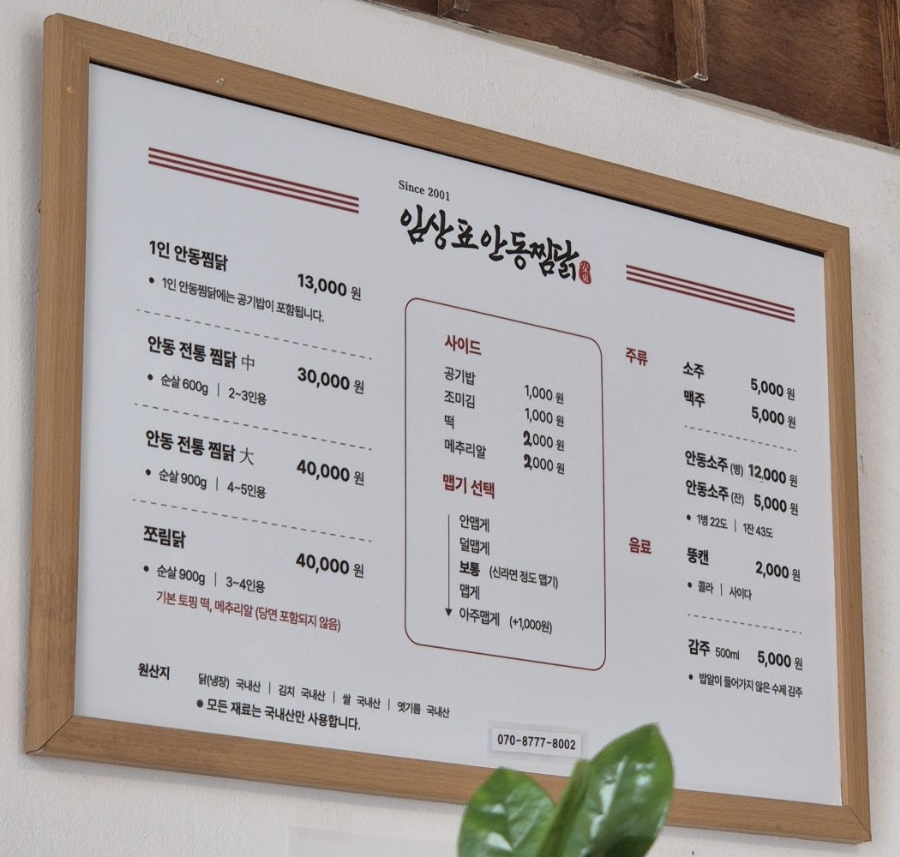 Since 2001
임상표안동찜닭
1인 안동찜닭
13,000 원
• 1인 안동찜닭에는 공기밥이 포함됩니다.
안동 전통 찜닭 中
30,000 원
• 순살 600g | 2~3인용
안동 전통 찜닭 大
40,000 원
• 순살 900g | 4~5인용
쪼림닭
40,000 원
• 순살 900g | 3~4인용
기본 토핑 떡, 메추리알 (당면 포함되지 않음)
사이드
공기밥 1,000 원
조미김 1,000 원
떡 2,000 원
메추리알 2,000 원
맵기 선택
안맵게
덜맵게
보통 (신라면 정도 맵기)
맵게
아주맵게 (+1,000원)
주류
소주 5,000 원
맥주 5,000 원
안동소주 (병) 12,000 원
안동소주 (잔) 5,000 원
• 1병 22도 | 1잔 43도
음료
뚱캔 2,000 원
• 콜라 | 사이다
감주 500ml 5,000 원
• 밥알이 들어가지 않은 수제 감주
원산지
닭(냉장) 국내산 | 김치 국내산 | 쌀 국내산 | 엿기름 국내산
※ 모든 재료는 국내산만 사용합니다.
070-8777-8002